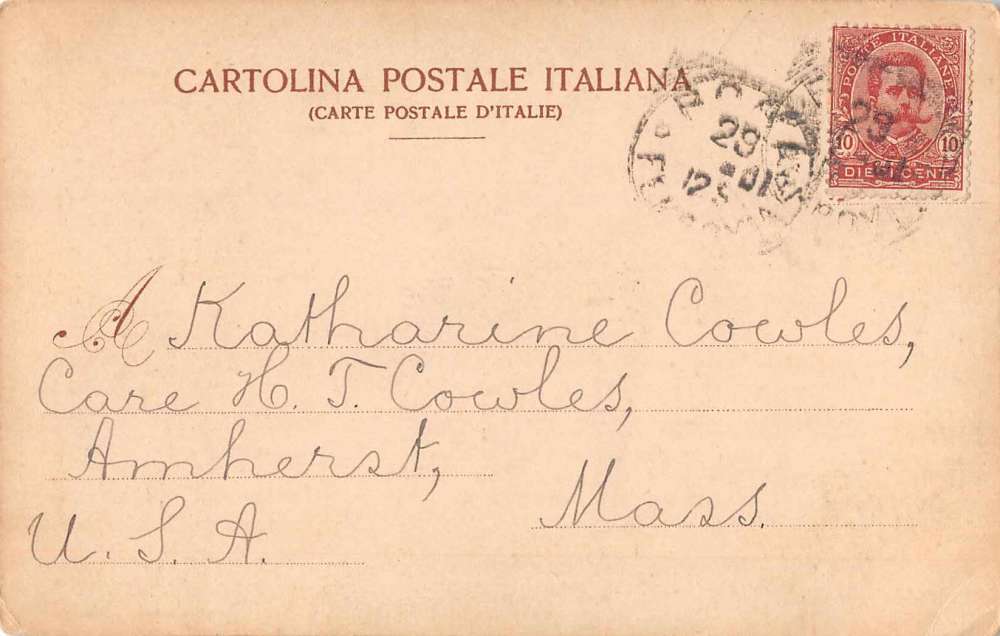 CARTOLINA POSTALE ITALIANA
(CARTE POSTALE D'ITALIE)
POSTE ITALIANE
10 10
DIECI CENT
ROMA
29
01
12 S
29
A Katharine Cowles,
Care H. T. Cowles,
Amherst,
Mass.
U. S. A.